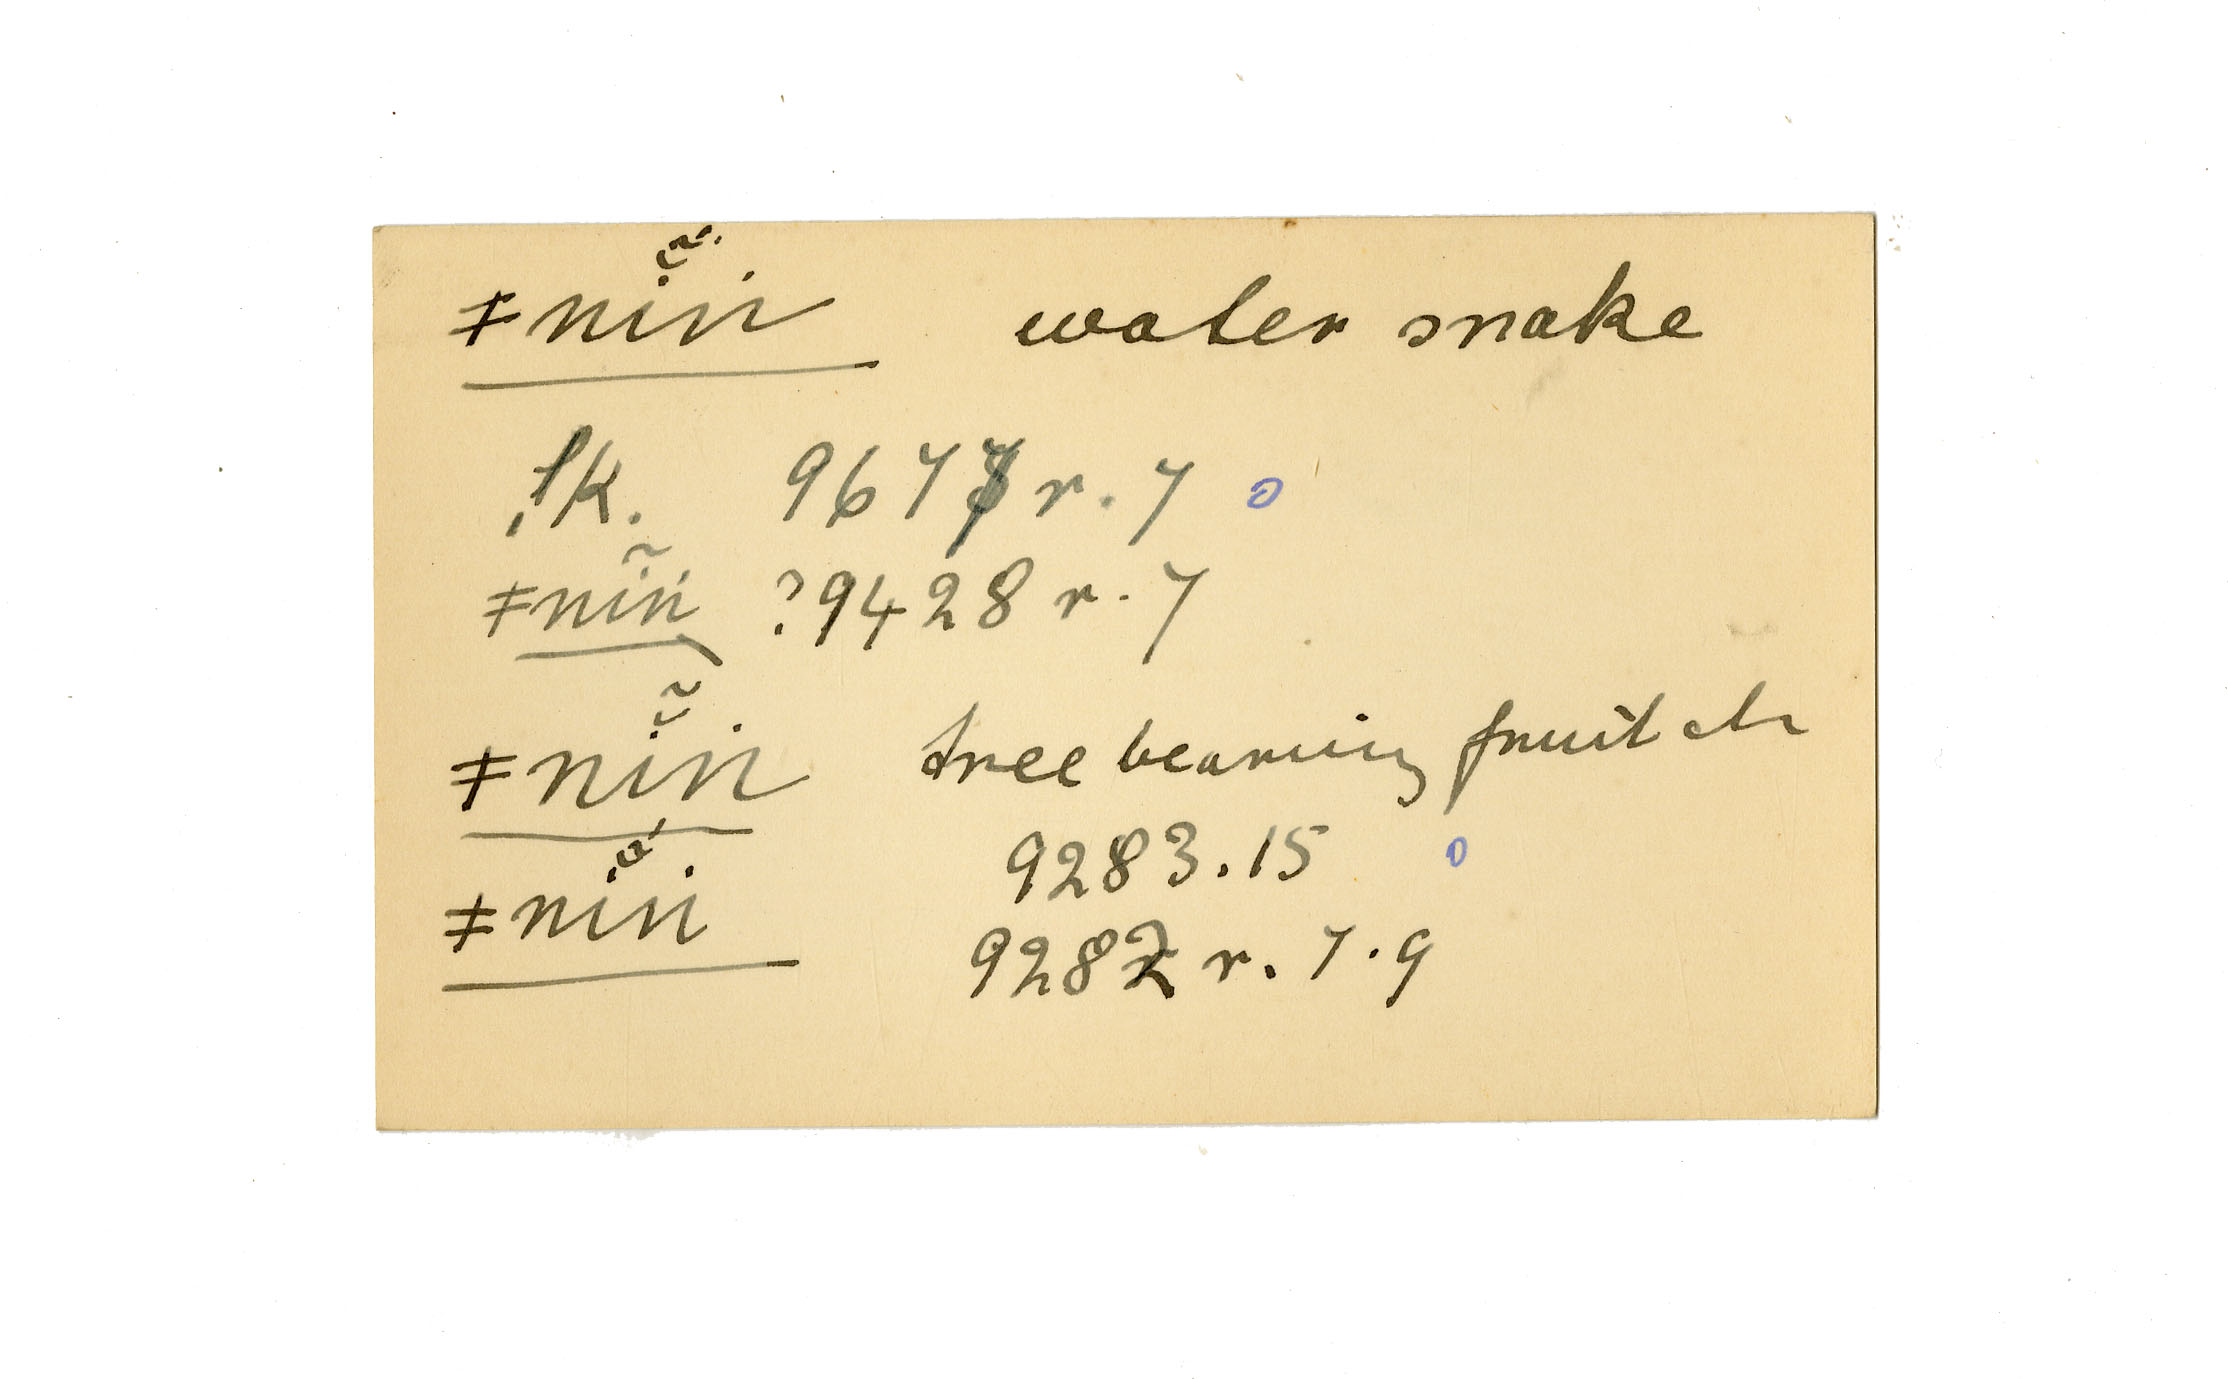 ǂnin̆̃ water snake
!k. 9677 r. 7
ǂnin̆̃ ? 9428 r. 7
ǂnin̆̃ tree bearing fruit etc
9283.15
ǂnin̆ 9282 r. 7.9